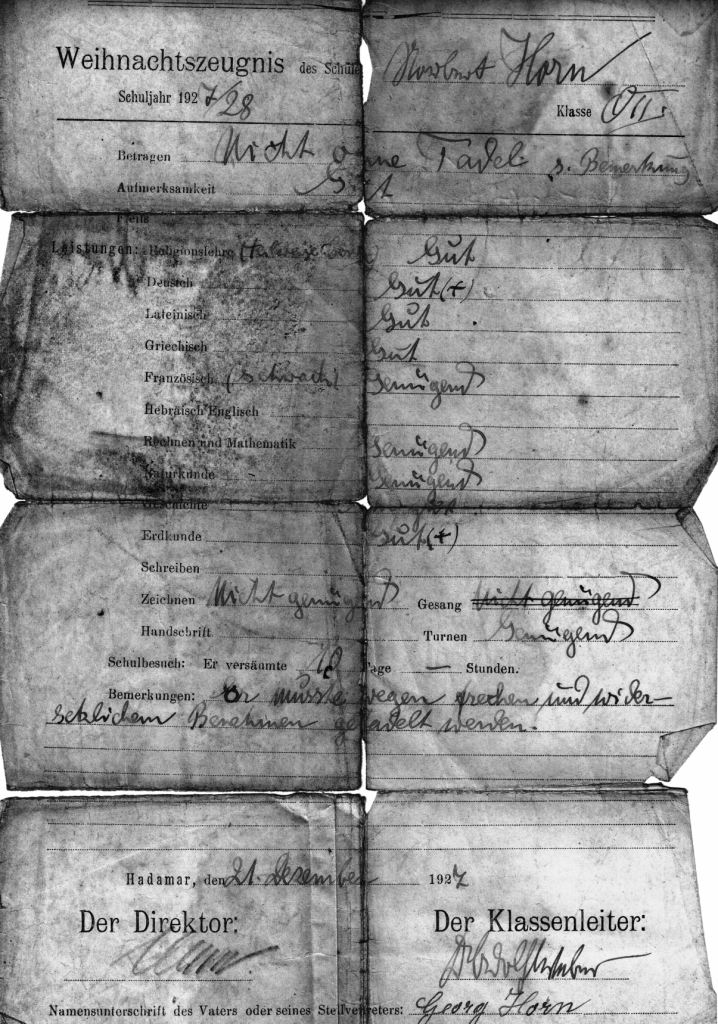 Weihnachtszeugnis des Schüle Norbert Horn
Schuljahr 1927/28 Klasse OII.
Betragen Nicht ohne Tadel s. Bemerkung
Aufmerksamkeit Gut
Fleiß
Leistungen: Religionslehre Gut
Deutsch Gut (+)
Lateinisch Gut
Griechisch Gut
Französisch (schwach) Genügend
Hebräisch Englisch
Rechnen und Mathematik Genügend
Naturkunde Genügend
Geschichte
Erdkunde Gut (+)
Schreiben
Zeichnen Nicht genügend Gesang Nicht genügend
Handschrift Turnen Genügend
Schulbesuch: Er versäumte Tage — Stunden.
Bemerkungen: Er musste wegen frechen und wider-
setzlichem Benehmen getadelt werden.
Hadamar, den 21. Dezember 1927
Der Direktor: Der Klassenleiter:
Namensunterschrift des Vaters oder seines Stellvertreters: Georg Horn